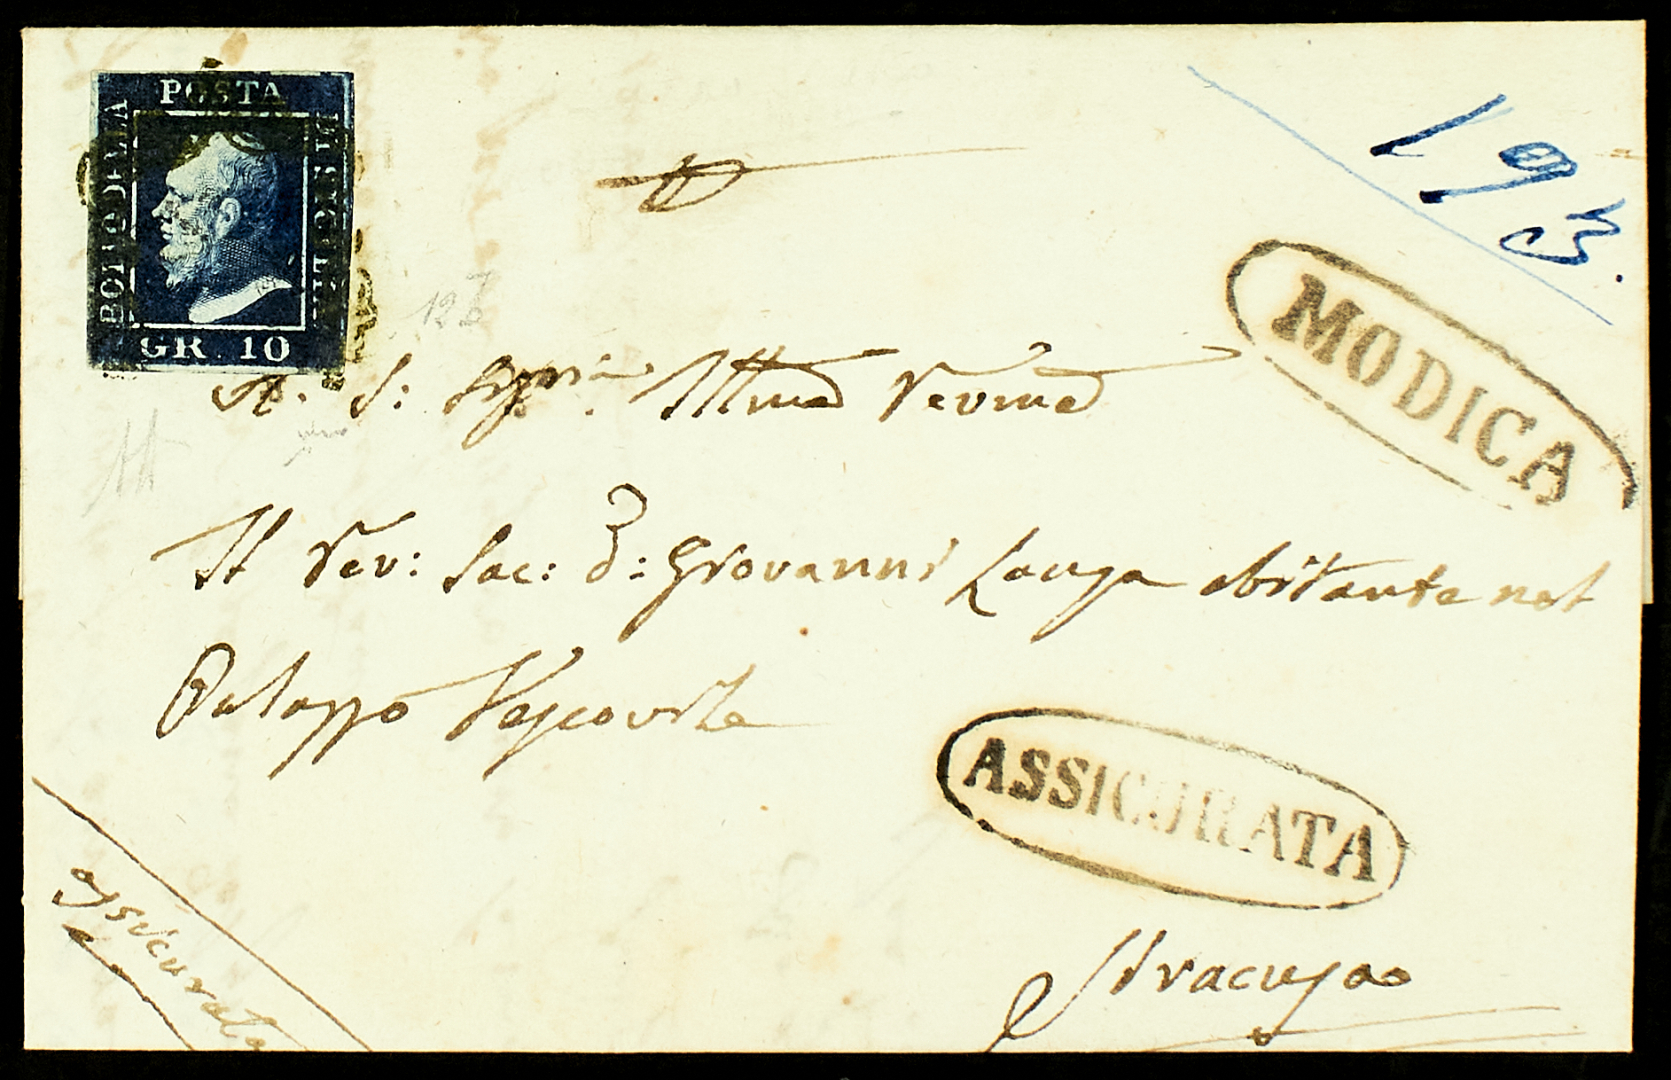 POSTA
BOLLO DELLA
DI SICILIA
GR. 10
193.
MODICA
A. S: Sigria Illma Revma
Il Rev: Sac: D: Giovanni Lauga abitante nel
Palazzo Vescovile
ASSICURATA
Siracusa
assicurata